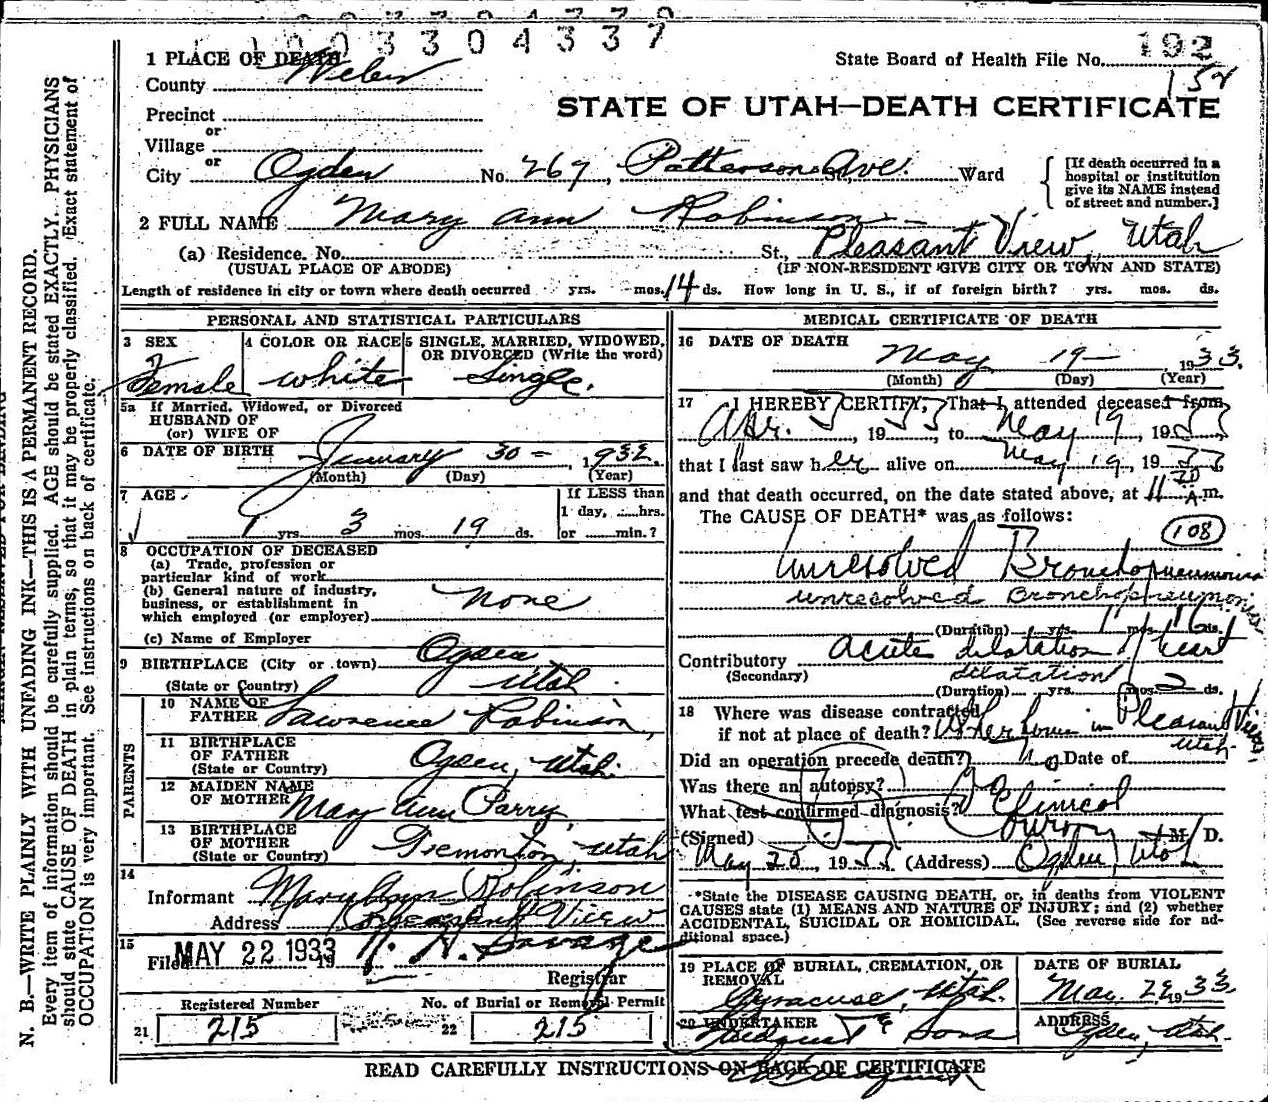 1003304337
1 PLACE OF DEATH
State Board of Health File No. 192
County Weber
152
STATE OF UTAH—DEATH CERTIFICATE
Precinct
or
Village
or
City Ogden No. 269, Patterson Ave. St., Ward
[If death occurred in a hospital or institution give its NAME instead of street and number.]
2 FULL NAME Mary Ann Robinson
(a) Residence. No. St., Pleasant View, Utah
(USUAL PLACE OF ABODE) (IF NON-RESIDENT GIVE CITY OR TOWN AND STATE)
Length of residence in city or town where death occurred yrs. mos. 14 ds. How long in U. S., if of foreign birth? yrs. mos. ds.
PERSONAL AND STATISTICAL PARTICULARS
3 SEX
Female
4 COLOR OR RACE
White
5 SINGLE, MARRIED, WIDOWED,
OR DIVORCED (Write the word)
Single.
5a If Married, Widowed, or Divorced
HUSBAND OF
(or) WIFE OF
6 DATE OF BIRTH January 30 – 1932.
(Month) (Day) (Year)
7 AGE
1 yrs 3 mos. 19 ds.
If LESS than
1 day, ....hrs.
or ......min.?
8 OCCUPATION OF DECEASED
(a) Trade, profession or
particular kind of work
(b) General nature of industry,
business, or establishment in
which employed (or employer) None
(c) Name of Employer
9 BIRTHPLACE (City or town) Ogden
(State or Country) Utah
PARENTS
10 NAME OF
FATHER Lawrence Robinson
11 BIRTHPLACE
OF FATHER
(State or Country) Ogden, Utah
12 MAIDEN NAME
OF MOTHER Mary Ann Parry
13 BIRTHPLACE
OF MOTHER
(State or Country) Tremonton, Utah
14
Informant Mary Ann Robinson
Address Pleasant View
15
Filed MAY 22 1933 19
Savage
Registrar
Registered Number
21 215
No. of Burial or Removal Permit
22 215
MEDICAL CERTIFICATE OF DEATH
16 DATE OF DEATH
May 19 – 1933.
(Month) (Day) (Year)
17 I HEREBY CERTIFY, That I attended deceased from
Apr. 5, 1933 to May 19, 1933
that I last saw her alive on May 19, 1933
and that death occurred, on the date stated above, at 11 20 A.m.
The CAUSE OF DEATH* was as follows:
108
Unresolved Bronchopneumonia
unresolved Bronchopneumonia
(Duration) yrs. 1 mos. 16 ds.
Contributory Acute dilatation heart
(Secondary) dilatation
(Duration) yrs. mos. 2 ds.
18 Where was disease contracted
if not at place of death? At her home in Pleasant View
Utah
Did an operation precede death? No Date of
Was there an autopsy?
What test confirmed diagnosis? Clinical
(Signed) M. D.
May 20, 1933 (Address) Ogden, Utah
*State the DISEASE CAUSING DEATH, or, in deaths from VIOLENT
CAUSES state (1) MEANS AND NATURE OF INJURY; and (2) whether
ACCIDENTAL, SUICIDAL OR HOMICIDAL. (See reverse side for ad-
ditional space.)
19 PLACE OF BURIAL, CREMATION, OR
REMOVAL
Syracuse, Utah.
DATE OF BURIAL
May. 22 1933.
20 UNDERTAKER
& Sons
ADDRESS
Ogden, Utah.
READ CAREFULLY INSTRUCTIONS ON BACK OF CERTIFICATE
N. B.—WRITE PLAINLY WITH UNFADING INK—THIS IS A PERMANENT RECORD.
Every item of information should be carefully supplied. AGE should be stated EXACTLY. PHYSICIANS
should state CAUSE OF DEATH in plain terms, so that it may be properly classified. Exact statement of
OCCUPATION is very important. See instructions on back of certificate.